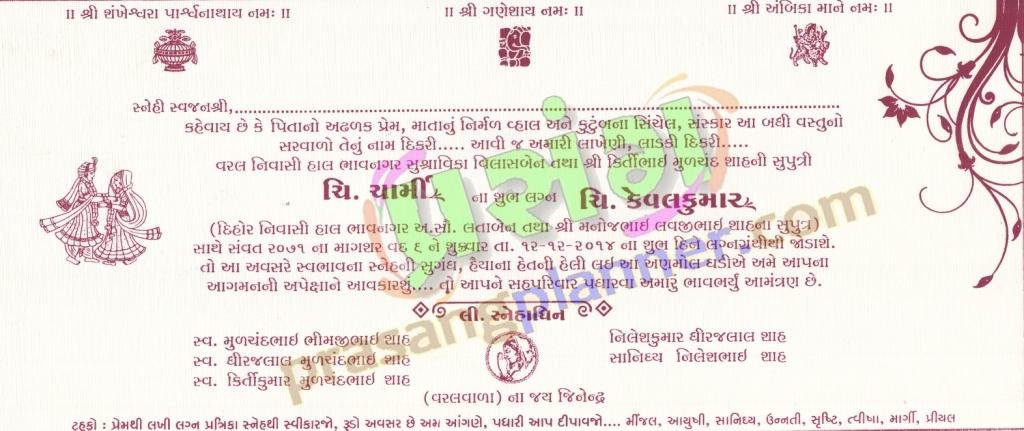 ॥ શ્રી શંખેશ્વરા પાર્શ્વનાથાય નમઃ ॥ ॥ શ્રી ગણેશાય નમઃ ॥ ॥ શ્રી અંબિકા માને નમઃ ॥
સ્નેહી સ્વજનશ્રી,
કહેવાય છે કે પિતાનો અઢળક પ્રેમ, માતાનું નિર્મળ વ્હાલ અને કુટુંબના સિંચેલ, સંસ્કાર આ બધી વસ્તુનો
સરવાળો તેનું નામ દિકરી..... આવી જ અમારી લાખેણી, લાડકી દિકરી.....
વરલ નિવાસી હાલ ભાવનગર સુશ્રાવિકા વિલાસબેન તથા શ્રી કિર્તિભાઈ મુળચંદ શાહની સુપુત્રી
ચિ. ચાર્મી ના શુભ લગ્ન ચિ. કેવલકુમાર
(દિહોર નિવાસી હાલ ભાવનગર અ.સૌ. લતાબેન તથા શ્રી મનોજભાઈ લવજીભાઈ શાહના સુપુત્ર)
સાથે સંવત ૨૦૭૧ ના માગશર વદ ૬ ને શુક્રવાર તા. ૧૨-૧૨-૨૦૧૪ ના શુભ દિને લગ્નગ્રંથીથી જોડાશે.
તો આ અવસરે સ્વભાવના સ્નેહની સુગંધ, હૈયાના હેતની હેલી લઈ આ અણમોલ ઘડીએ અમે આપના
આગમનની અપેક્ષાને આવકારશું.... તો આપને સહપરિવાર પધારવા અમારું ભાવભર્યું આમંત્રણ છે.
લી. સ્નેહાધિન
સ્વ. મુળચંદભાઈ ભીમજીભાઈ શાહ નિલેશકુમાર ધીરજલાલ શાહ
સ્વ. ધીરજલાલ મુળચંદભાઈ શાહ સાનિધ્ય નિલેશભાઈ શાહ
સ્વ. કિર્તિકુમાર મુળચંદભાઈ શાહ
(વરલવાળા) ના જય જિનેન્દ્ર
ટહુકો : પ્રેમથી લખી લગ્ન પ્રત્રિકા સ્નેહથી સ્વીકારજો, રૂડો અવસર છે અમ આંગણે, પધારી આપ દીપાવજો.... મીંજલ, આયુષી, સાનિધ્ય, ઉન્નતી, સૃષ્ટિ, ત્વીષા, માર્ગી, પ્રીયલ
પ્રસંગ
prasangplanner.com